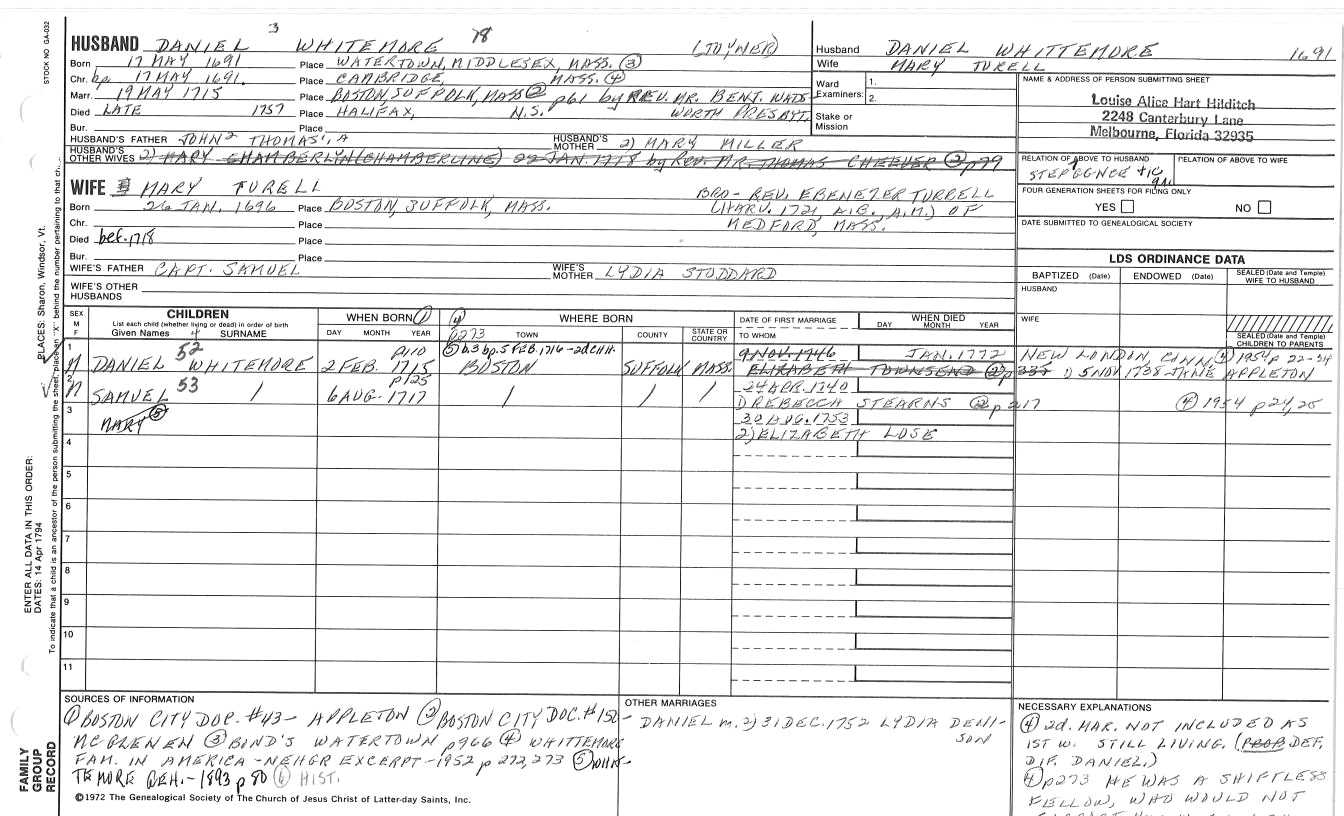 STOCK NO GA-032
3
18
HUSBAND DANIEL WHITEMORE (JOYNER)
Born 17 MAY 1691 Place WATERTOWN, MIDDLESEX, MASS. (3)
Chr. bp 17 MAY 1691. Place CAMBRIDGE, MASS. (4)
Marr. 19 MAY 1715 Place BOSTON, SUFFOLK, MASS (2) p61 by REV. MR. BENJ. WADS-
Died LATE 1757 Place HALIFAX, N.S. WORTH PRESBYT.
Bur. Place
HUSBAND'S FATHER JOHN2 THOMAS1, A HUSBAND'S MOTHER 2) MARY MILLER
HUSBAND'S OTHER WIVES 2) MARY CHAMBERLYN (CHAMBERLINE) 22 JAN 1718 by REV. MR. THOMAS CHEEVER (2) p79
WIFE MARY TURELL BRO- REV. EBENEZER TURRELL
Born 26 JAN. 1696 Place BOSTON, SUFFOLK, MASS. (HARV. 1721, A.B., A.M.) OF
Chr. Place MEDFORD, MASS.
Died bef. 1718 Place
Bur. Place
WIFE'S FATHER CAPT. SAMUEL WIFE'S MOTHER LYDIA STODDARD
WIFE'S OTHER HUSBANDS
Husband DANIEL WHITTEMORE 1691
Wife MARY TURELL
Ward 1.
Examiners: 2.
Stake or Mission
NAME & ADDRESS OF PERSON SUBMITTING SHEET
Louise Alice Hart Hilditch
2248 Canterbury Lane
Melbourne, Florida 32935
RELATION OF ABOVE TO HUSBAND RELATION OF ABOVE TO WIFE
FOUR GENERATION SHEETS FOR FILING ONLY
YES NO
DATE SUBMITTED TO GENEALOGICAL SOCIETY
LDS ORDINANCE DATA
BAPTIZED (Date) ENDOWED (Date) SEALED (Date and Temple) WIFE TO HUSBAND
HUSBAND
WIFE
SEALED (Date and Temple) CHILDREN TO PARENTS
SEX M F
CHILDREN
List each child (whether living or dead) in order of birth
Given Names 4 SURNAME
WHEN BORN (1)
DAY MONTH YEAR
(4) WHERE BORN
p273 TOWN COUNTY STATE OR COUNTRY
DATE OF FIRST MARRIAGE
TO WHOM
WHEN DIED
DAY MONTH YEAR
1 52 p110 (5) b.3 bp. 5 FEB. 1716 - 2d CH H. 9 NOV. 1746 JAN. 1772 NEW LONDON, CONN. (4) 1954 p 22-24
M DANIEL WHITEMORE 2 FEB. 1715 BOSTON SUFFOLK MASS. ELIZABETH TOWNSEND (2) p 335 1) 5 NOV 1738 JANE APPLETON
2 53 p125 24 APR. 1740
M SAMUEL / 6 AUG. 1717 / / / 1) REBECCA STEARNS (2) p 217 (4) 1954 p 24,25
3 MARY (5) 30 AUG. 1753
2) ELIZABETH LOSE
4
5
6
7
8
9
10
11
SOURCES OF INFORMATION
(1) BOSTON CITY DOC. #43 - APPLETON (2) BOSTON CITY DOC. #150 -
MCGLENEN (3) BOND'S WATERTOWN p966 (4) WHITTEMORE
FAM. IN AMERICA - NEHGR EXCERPT - 1952 p 272, 273 (5) WHIT-
TEMORE GEN. - 1893 p 80 (6) HIST.
©1972 The Genealogical Society of The Church of Jesus Christ of Latter-day Saints, Inc.
OTHER MARRIAGES
DANIEL m. 2) 31 DEC. 1752 LYDIA DENI-
SON
NECESSARY EXPLANATIONS
(4) 2d. MAR. NOT INCLUDED AS
1ST W. STILL LIVING. (PROB DEF.
DIF. DANIEL.)
(4) p273 HE WAS A SHIFTLESS
FELLOW, WHO WOULD NOT
PLACES: Sharon, Windsor, Vt.
ENTER ALL DATA IN THIS ORDER:
DATES: 14 Apr 1794
To indicate that a child is an ancestor of the person submitting the sheet, place an "X" behind the number pertaining to that ch
FAMILY GROUP RECORD